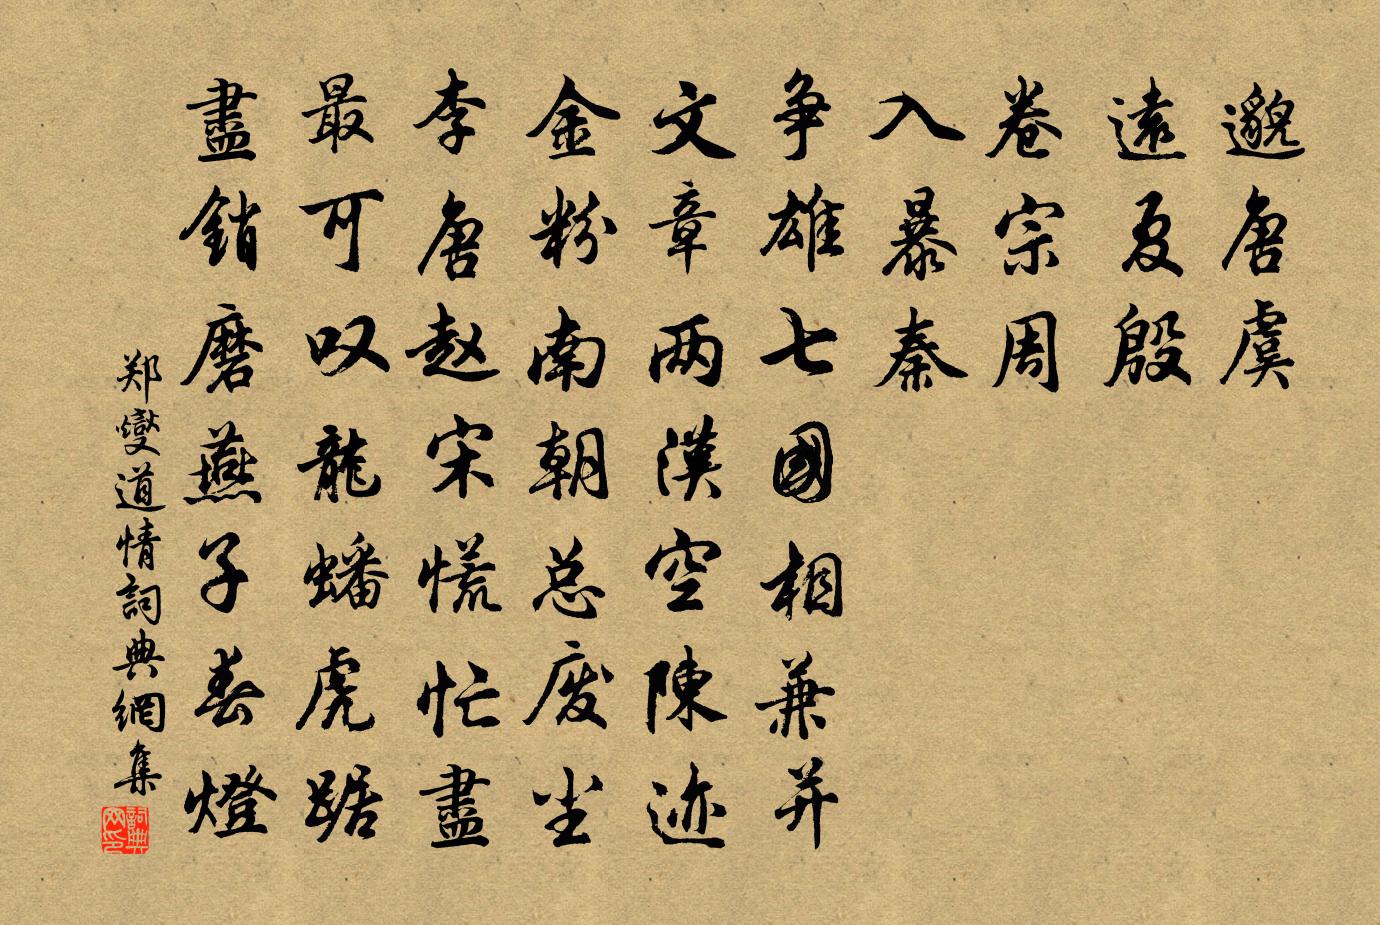 邈唐虞
遠夏殷
卷宗周
入暴秦
争雄七國相兼并
文章两漢空陳迹
金粉南朝总废尘
李唐赵宋慌忙盡
最可叹龍蟠虎踞
盡銷磨燕子春燈
郑燮道情詞典網集
詞典网印